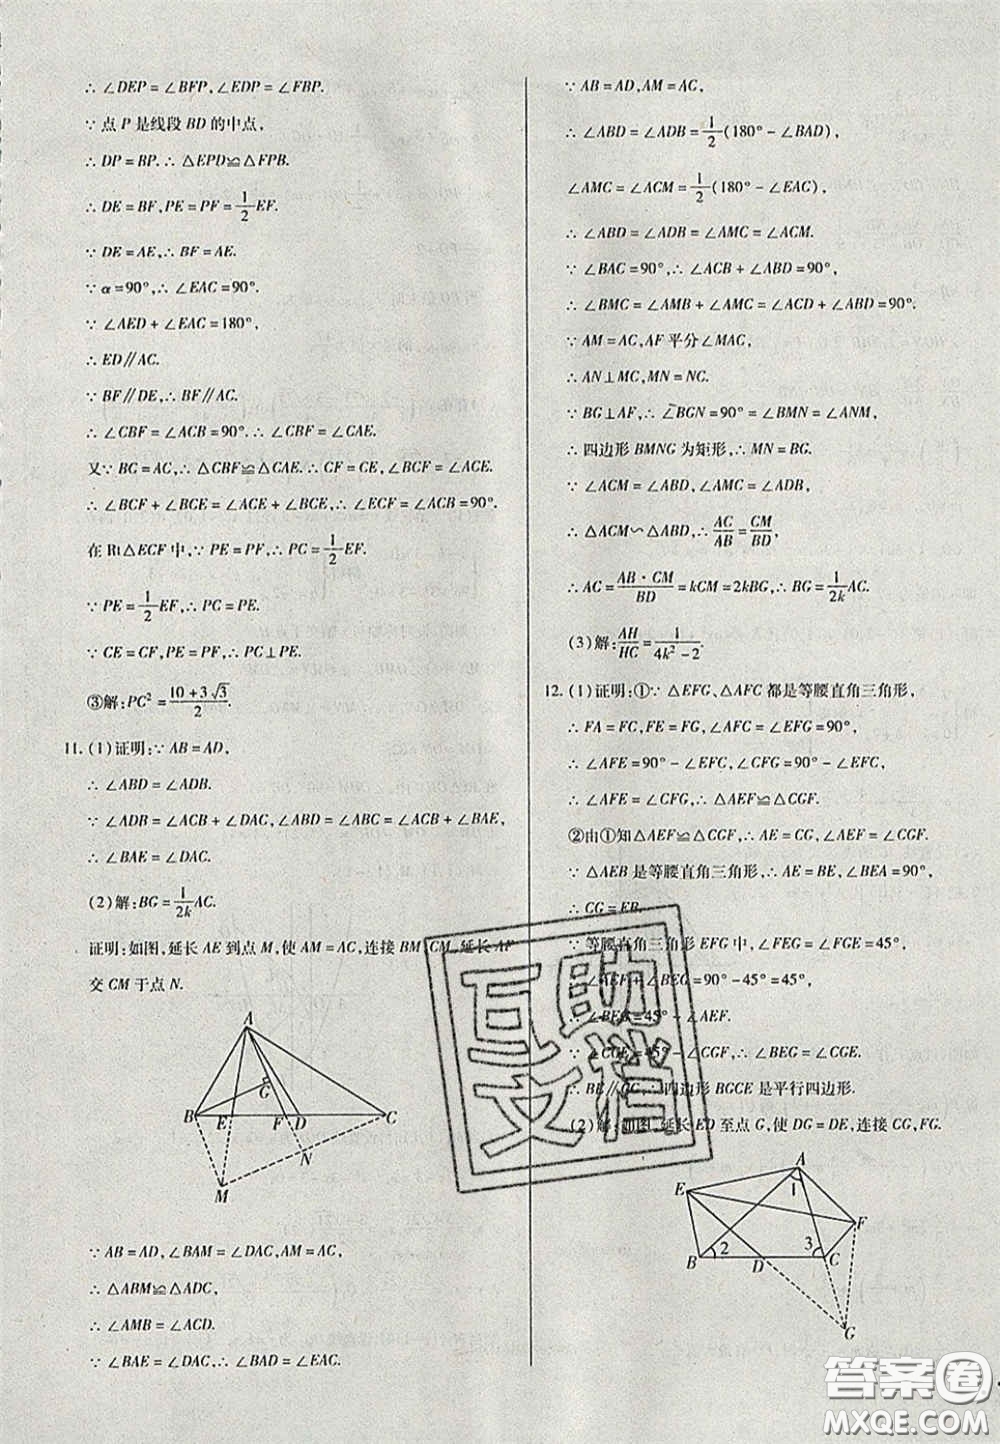 ∴ ∠DEP = ∠BFP, ∠EDP = ∠FBP.
∵ 点 P 是线段 BD 的中点,
∴ DP = BP. ∴ △EPD≌△FPB.
∴ DE = BF, PE = PF = 1/2 EF.
∵ DE = AE, ∴ BF = AE.
∵ α = 90°, ∴ ∠EAC = 90°.
∵ ∠AED + ∠EAC = 180°,
∴ ED∥AC.
∵ BF∥DE, ∴ BF∥AC.
∴ ∠CBF = ∠ACB = 90°. ∴ ∠CBF = ∠CAE.
又∵ BC = AC, ∴ △CBF≌△CAE. ∴ CF = CE, ∠BCF = ∠ACE.
∴ ∠BCF + ∠BCE = ∠ACE + ∠BCE, ∴ ∠ECF = ∠ACB = 90°.
在 Rt△ECF 中, ∵ PE = PF, ∴ PC = 1/2 EF.
∵ PE = 1/2 EF, ∴ PC = PE.
∵ CE = CF, PE = PF, ∴ PC⊥PE.
③解: PC² = (10 + 3√3)/2.
11. (1)证明: ∵ AB = AD,
∴ ∠ABD = ∠ADB.
∵ ∠ADB = ∠ACB + ∠DAC, ∠ABD = ∠ABC = ∠ACB + ∠BAE,
∴ ∠BAE = ∠DAC.
(2)解: BG = 1/(2k) AC.
证明:如图,延长 AE 到点 M,使 AM = AC,连接 BM,CM,延长 AF
交 CM 于点 N.
A
G
B E F D C
N
M
∵ AB = AD, ∠BAM = ∠DAC, AM = AC,
∴ △ABM≌△ADC,
∴ ∠AMB = ∠ACD.
∵ ∠BAE = ∠DAC, ∴ ∠BAD = ∠EAC.
∵ AB = AD, AM = AC,
∴ ∠ABD = ∠ADB = 1/2 (180° − ∠BAD),
∠AMC = ∠ACM = 1/2 (180° − ∠EAC),
∴ ∠ABD = ∠ADB = ∠AMC = ∠ACM.
∵ ∠BAC = 90°, ∴ ∠ACB + ∠ABD = 90°,
∴ ∠BMC = ∠AMB + ∠AMC = ∠ACD + ∠ABD = 90°.
∵ AM = AC, AF 平分∠MAC,
∴ AN⊥MC, MN = NC.
∵ BG⊥AF, ∴ ∠BGN = 90° = ∠BMN = ∠ANM,
∴ 四边形 BMNG 为矩形, ∴ MN = BG.
∵ ∠ACM = ∠ABD, ∠AMC = ∠ADB,
∴ △ACM∽△ABD, ∴ AC/AB = CM/BD,
∴ AC = AB·CM/BD = kCM = 2kBG, ∴ BG = 1/(2k) AC.
(3)解: AH/HC = 1/(4k² − 2).
12. (1)证明:①∵ △EFG、△AFC 都是等腰直角三角形,
∴ FA = FC, FE = FG, ∠AFC = ∠EFG = 90°,
∴ ∠AFE = 90° − ∠EFC, ∠CFG = 90° − ∠EFC,
∴ ∠AFE = ∠CFG, ∴ △AEF≌△CGF.
②由①知△AEF≌△CGF, ∴ AE = CG, ∠AEF = ∠CGF.
∵ △AEB 是等腰直角三角形, ∴ AE = BE, ∠BEA = 90°,
∴ CG = EB.
∵ 等腰直角三角形 EFG 中, ∠FEG = ∠FGE = 45°,
∴ ∠AEF + ∠BEG = 90° − 45° = 45°,
∴ ∠BEG = 45° − ∠AEF.
∵ ∠CGE = 45° − ∠CGF, ∴ ∠BEG = ∠CGE.
∴ BE∥CG, 四边形 BGCE 是平行四边形.
(2)解:如图,延长 ED 至点 G,使 DG = DE,连接 CG, FG.
A
E 1
F
B 2 D 3 C
G
互助
文档
答案圈
MXQE.COM